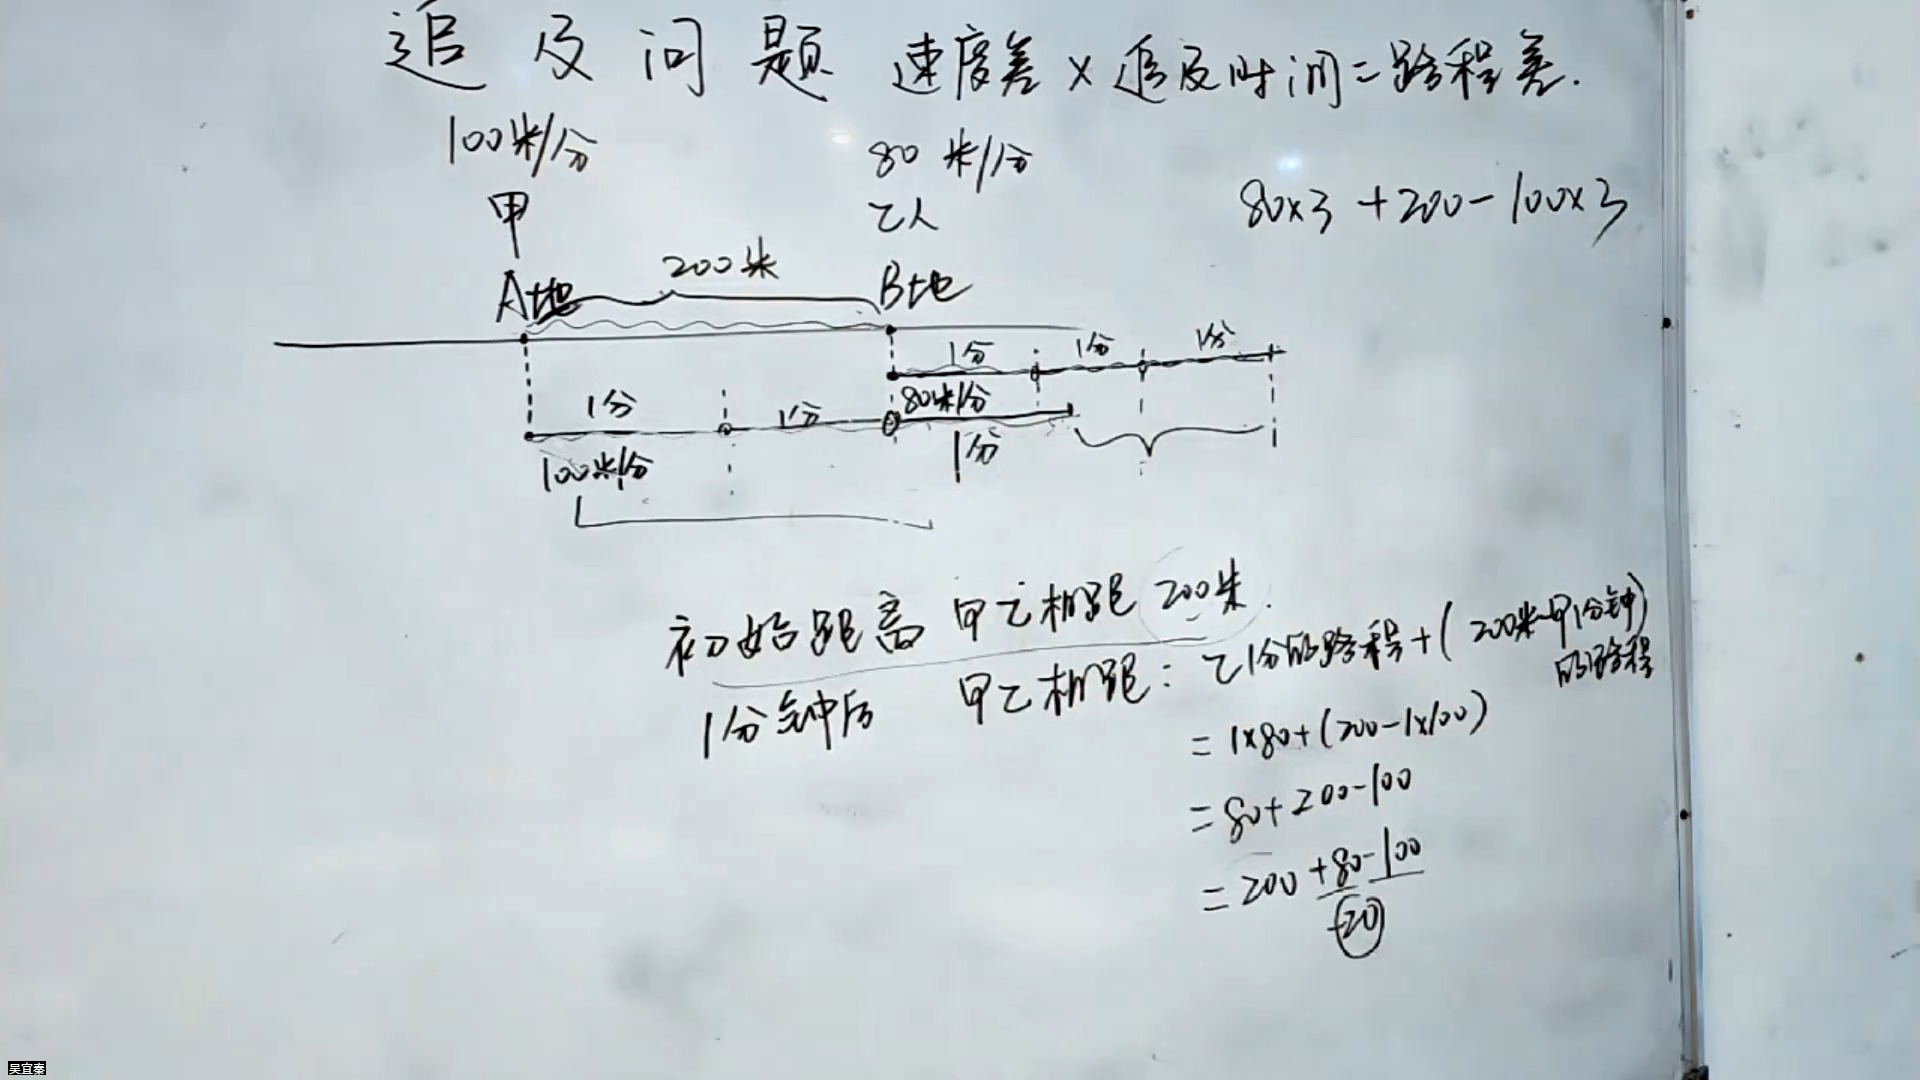 追及问题 速度差×追及时间=路程差.
100米/分 80米/分
甲 乙人 80×3+200-100×3
200米
A地 B地
1分 1分 1分
1分 1分 80米/分
100米/分 1分
初始距离 甲乙相距 200米.
1分钟后 甲乙相距: 乙1分的路程+(200米-甲1分钟)
的路程
=1×80+(200-1×100)
=80+200-100
=200+80-100
-20
吴宜蓁